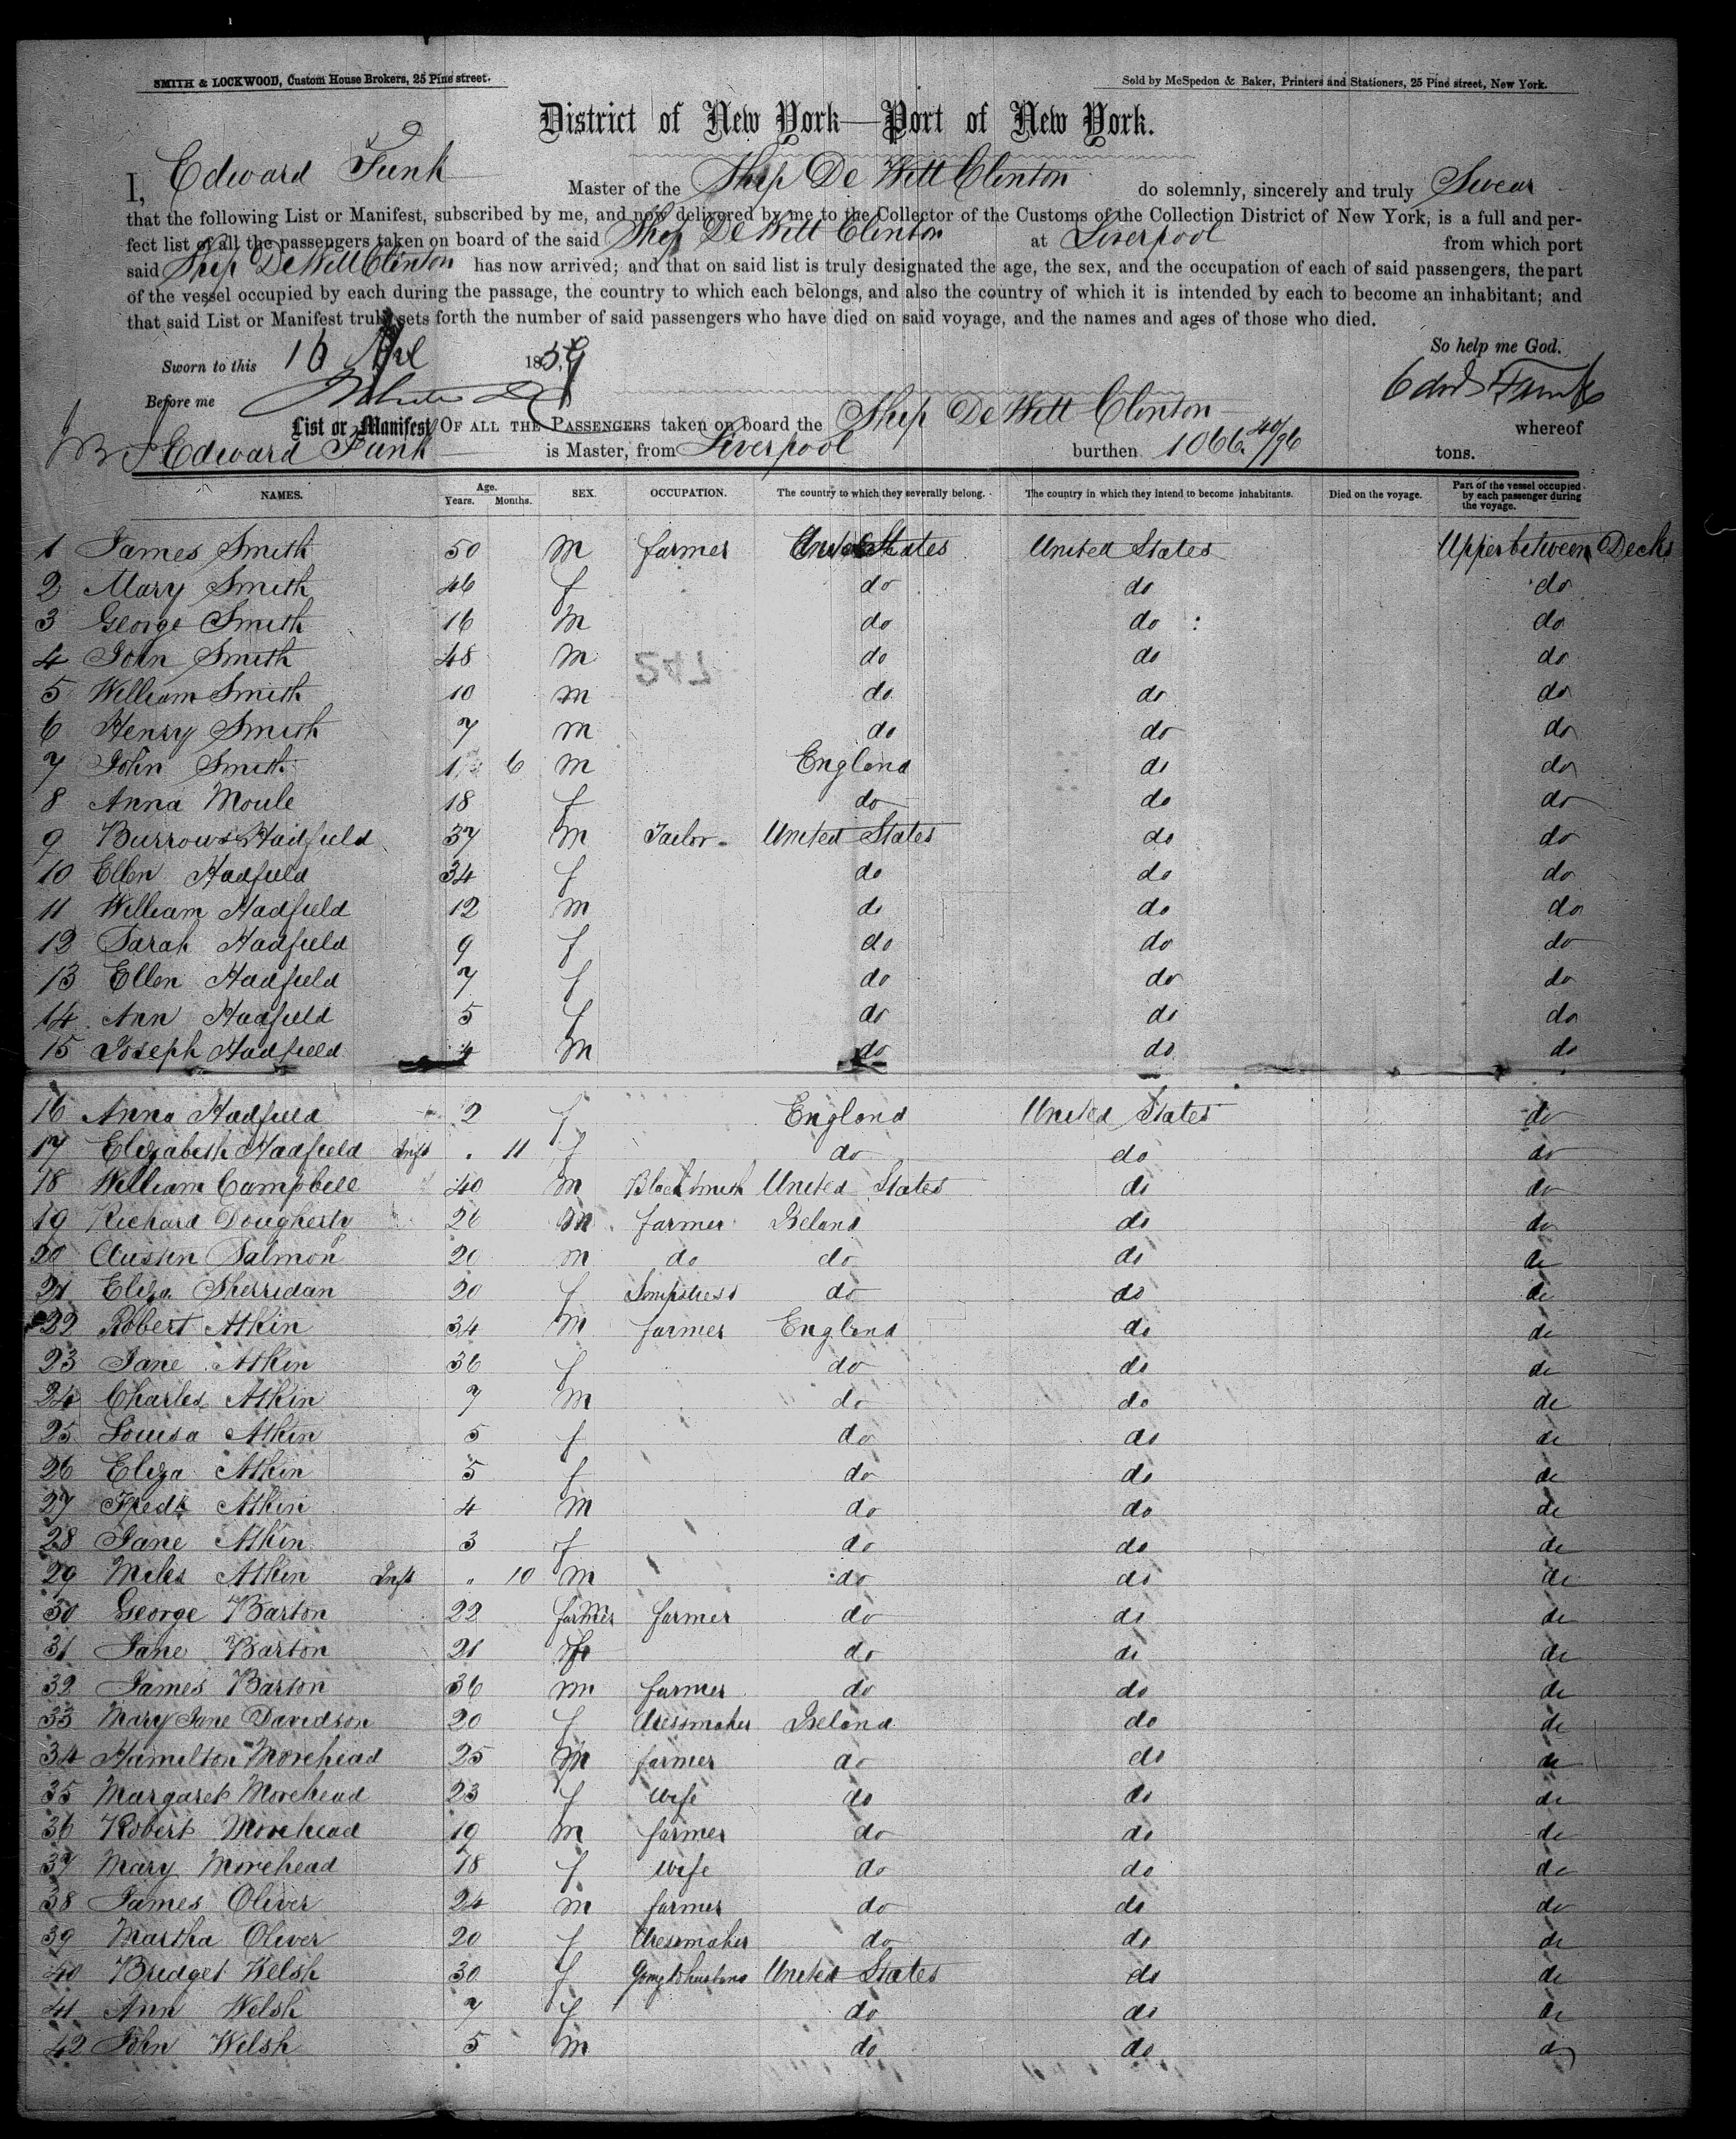 SMITH & LOCKWOOD, Custom House Brokers, 25 Pine street.
Sold by McSpedon & Baker, Printers and Stationers, 25 Pine street, New York.
District of New York—Port of New York.
I, Edward Funk Master of the Ship De Witt Clinton do solemnly, sincerely and truly Swear
that the following List or Manifest, subscribed by me, and now delivered by me to the Collector of the Customs of the Collection District of New York, is a full and per-
fect list of all the passengers taken on board of the said Ship De Witt Clinton at Liverpool from which port
said Ship De Witt Clinton has now arrived; and that on said list is truly designated the age, the sex, and the occupation of each of said passengers, the part
of the vessel occupied by each during the passage, the country to which each belongs, and also the country of which it is intended by each to become an inhabitant; and
that said List or Manifest truly sets forth the number of said passengers who have died on said voyage, and the names and ages of those who died.
So help me God.
Sworn to this 16 1859
Edwd Funk
Before me
List or Manifest OF ALL THE PASSENGERS taken on board the Ship De Witt Clinton whereof
Edward Funk is Master, from Liverpool burthen 1066 40/96 tons.
NAMES. Age. Years. Months. SEX. OCCUPATION. The country to which they severally belong. The country in which they intend to become inhabitants. Died on the voyage. Part of the vessel occupied by each passenger during the voyage.
1 James Smith 50 m farmer United States United States Upper between Decks
2 Mary Smith 46 f do do do
3 George Smith 16 m do do do
4 John Smith 48 m do do do
247
5 William Smith 10 m do do do
6 Henry Smith 7 m do do do
7 John Smith 1 6 m England do do
8 Anna Moule 18 f do do do
9 Burrows Hadfield 37 m Tailor United States do do
10 Ellen Hadfield 34 f do do do
11 William Hadfield 12 m do do do
12 Sarah Hadfield 9 f do do do
13 Ellen Hadfield 7 f do do do
14 Ann Hadfield 5 f do do do
15 Joseph Hadfield 4 m do do do
16 Anna Hadfield 2 f England United States do
17 Elizabeth Hadfield Inft " 11 f do do do
18 William Campbell 40 m Blacksmith United States do do
19 Richard Dougherty 26 m farmer Ireland do do
20 Austin Salmon 20 m do do do do
21 Eliza Sherridan 20 f Simpstress do do do
22 Robert Atkin 34 m farmer England do do
23 Jane Atkin 36 f do do do
24 Charles Atkin 7 m do do do
25 Louisa Atkin 5 f do do do
26 Eliza Atkin 5 f do do do
27 Fredk Atkin 4 m do do do
28 Jane Atkin 3 f do do do
29 Miles Atkin Inft " 10 m do do do
30 George Barton 22 farmer farmer do do do
31 Jane Barton 21 f do do do
32 James Barton 36 m farmer do do do
33 Mary Jane Davidson 20 f dressmaker Ireland do do
34 Hamilton Morehead 25 m farmer do do do
35 Margaret Morehead 23 f wife do do do
36 Robert Morehead 19 m farmer do do do
37 Mary Morehead 18 f wife do do do
38 James Oliver 24 m farmer do do do
39 Martha Oliver 20 f dressmaker do do do
40 Bridget Welsh 30 f Going to husband United States do do
41 Ann Welsh 7 f do do do
42 John Welsh 5 m do do do